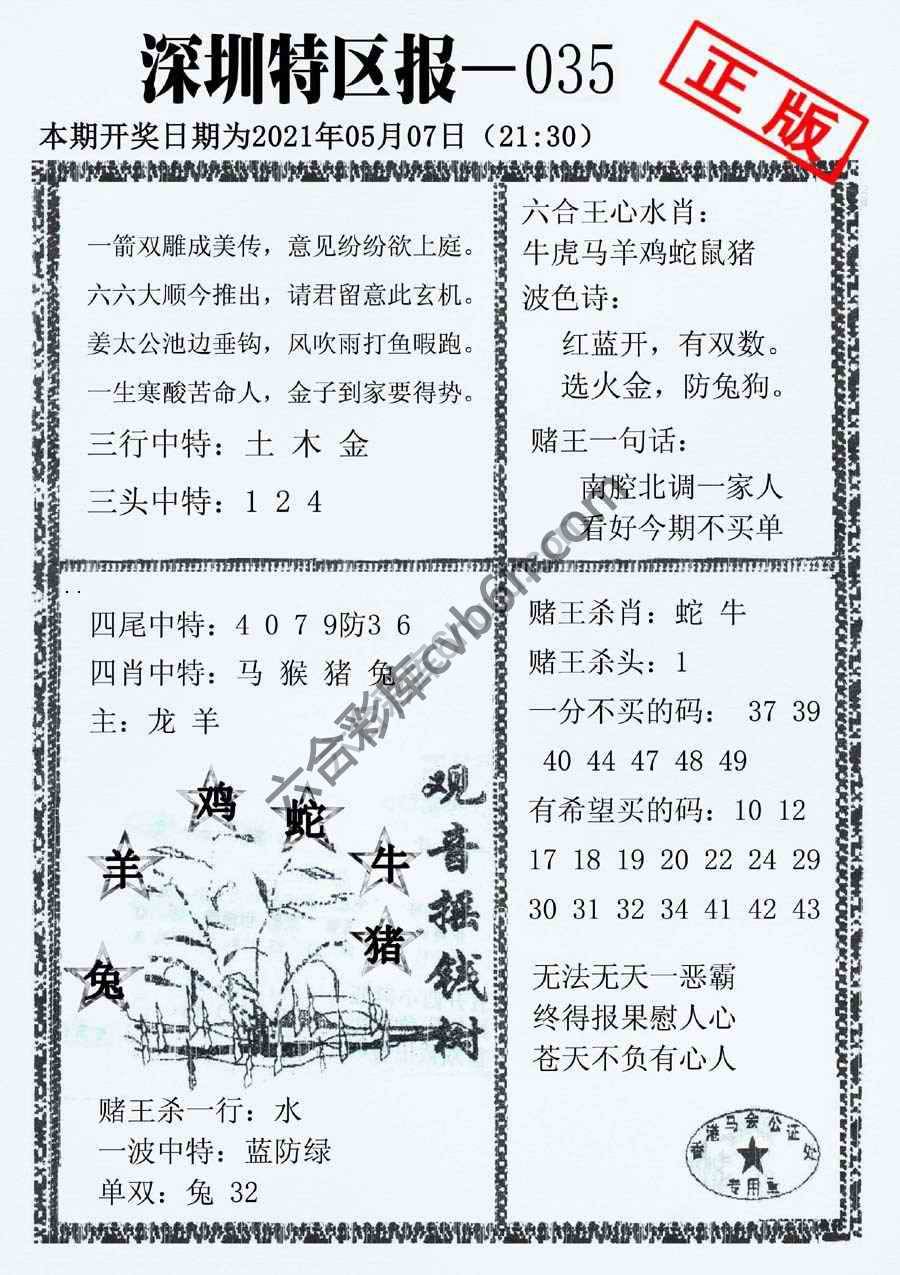 深圳特区报—035
正版
本期开奖日期为2021年05月07日（21:30）
一箭双雕成美传，意见纷纷欲上庭。
六六大顺今推出，请君留意此玄机。
姜太公池边垂钩，风吹雨打鱼暇跑。
一生寒酸苦命人，金子到家要得势。
三行中特：土 木 金
三头中特：1 2 4
六合王心水肖：
牛虎马羊鸡蛇鼠猪
波色诗：
红蓝开，有双数。
选火金，防兔狗。
赌王一句话：
南腔北调一家人
看好今期不买单
四尾中特：4 0 7 9防3 6
四肖中特：马 猴 猪 兔
主：龙 羊
鸡
蛇
羊
牛
猪
兔
观音摇钱树
赌王杀一行：水
一波中特：蓝防绿
单双：兔 32
赌王杀肖：蛇 牛
赌王杀头：1
一分不买的码： 37 39
40 44 47 48 49
有希望买的码：10 12
17 18 19 20 22 24 29
30 31 32 34 41 42 43
无法无天一恶霸
终得报果慰人心
苍天不负有心人
香港马会公证处
专用章
六合彩库cvb6h.com